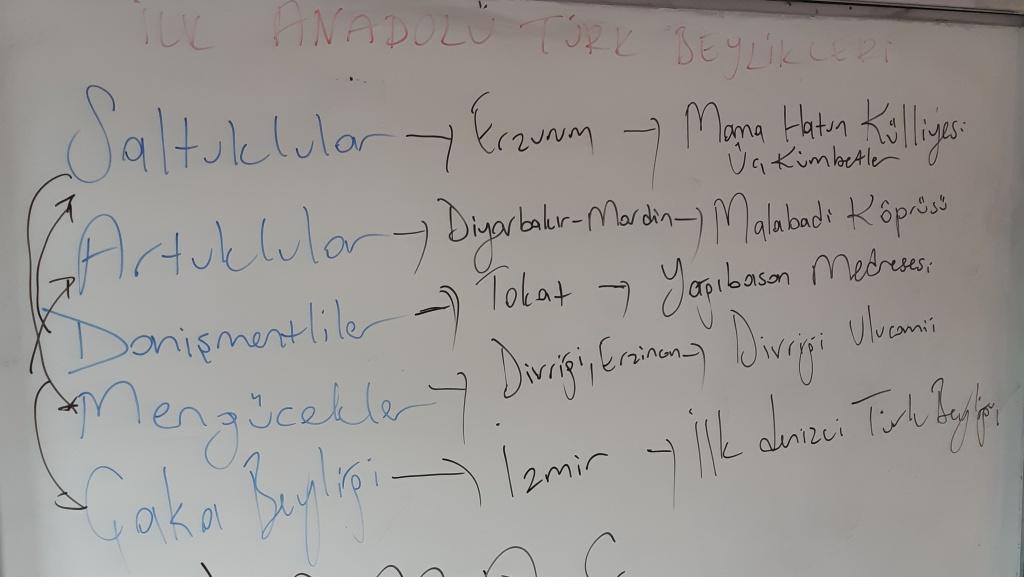 İLK ANADOLU TÜRK BEYLİKLERİ
Saltuklular → Erzurum → Mama Hatun Külliyesi
Üç Kümbetler
Artuklular → Diyarbakır-Mardin → Malabadi Köprüsü
Danişmentliler → Tokat → Yağıbasan Medresesi
Mengücekler → Divriği, Erzincan → Divriği Ulucamii
Çaka Beyliği → İzmir → İlk denizci Türk Beyliği